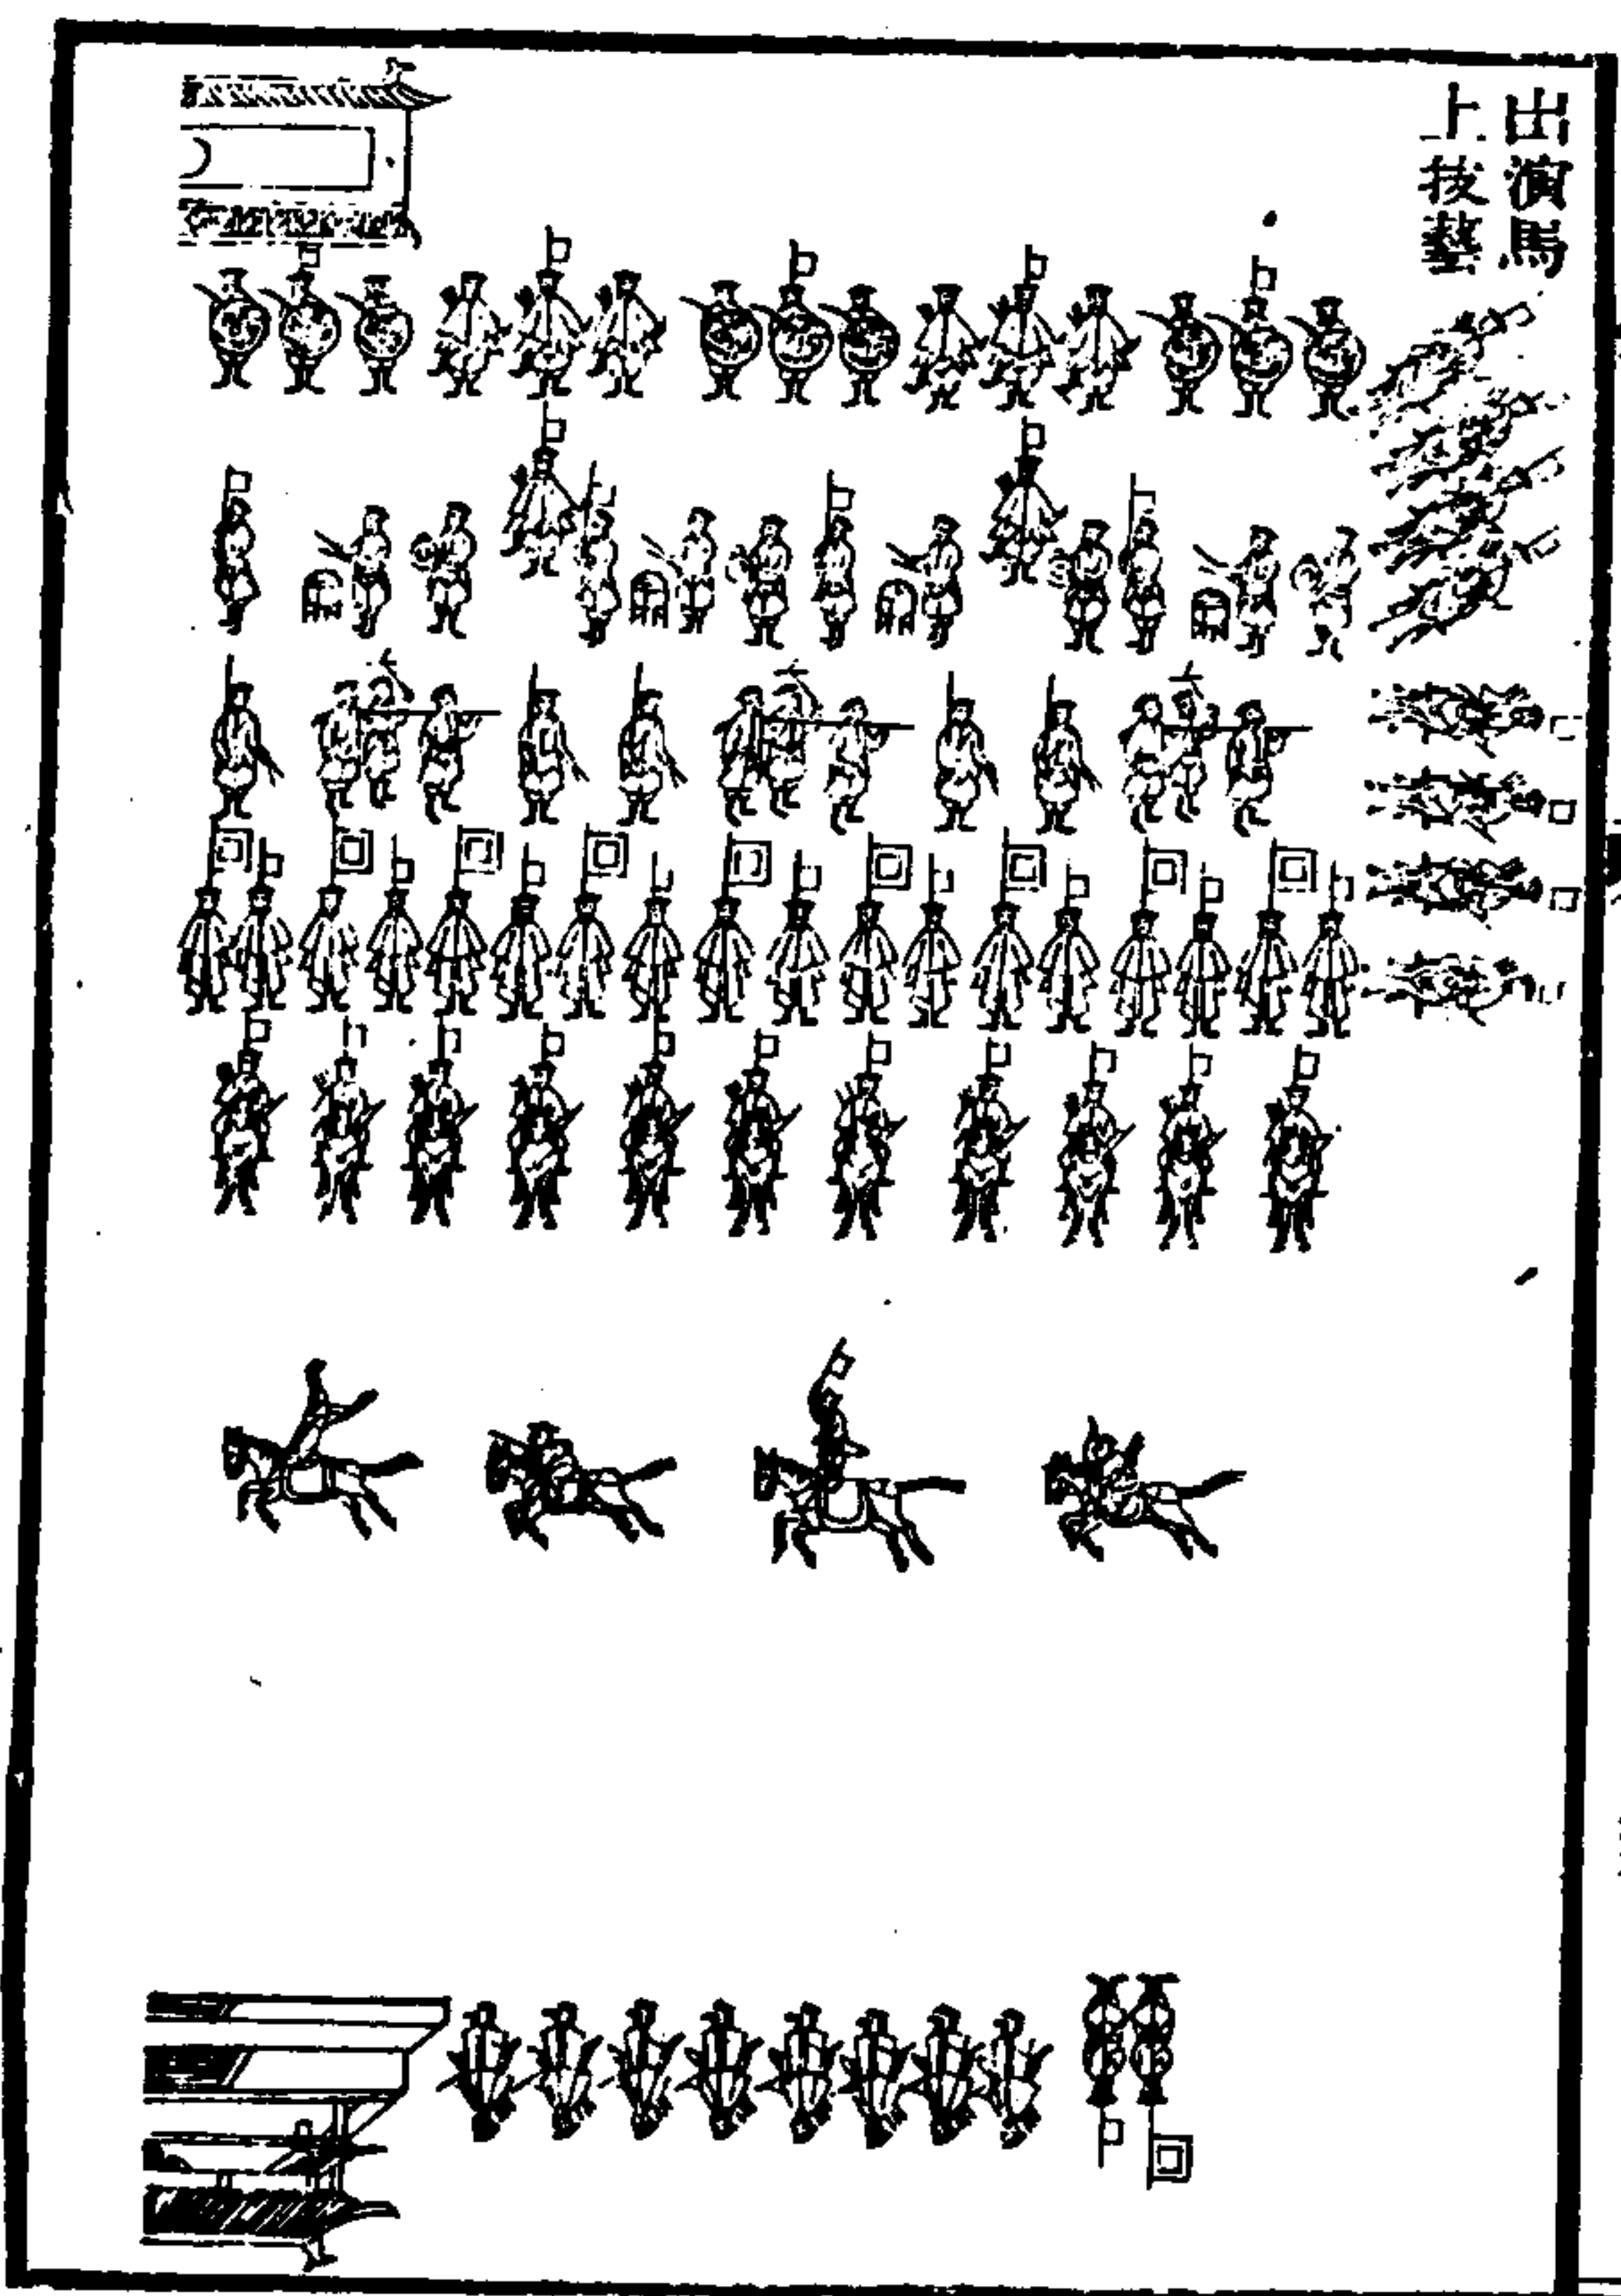 出演馬
上技藝